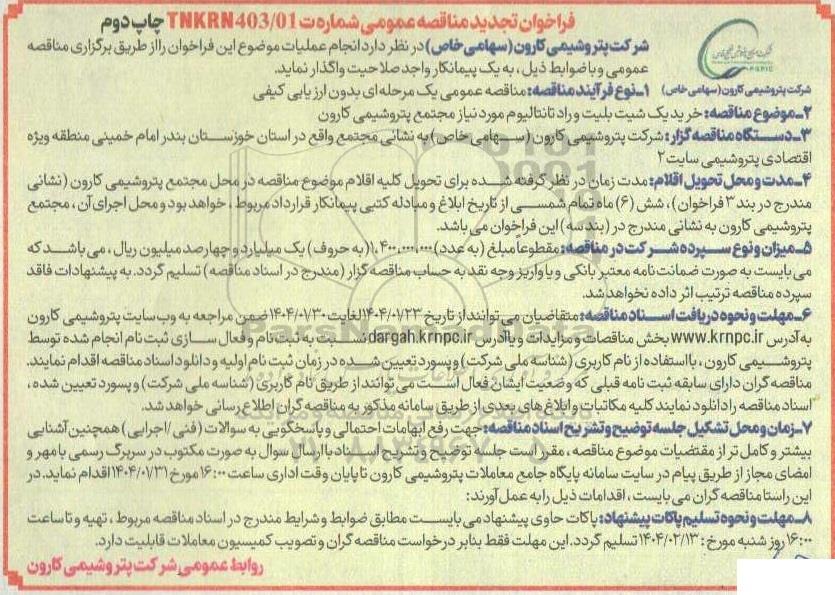 فراخوان تجدید مناقصه عمومی شماره ت TNKRN403/01 چاپ دوم
شرکت پتروشیمی کارون (سهامی خاص) در نظر دارد انجام عملیات موضوع این فراخوان را از طریق برگزاری مناقصه
عمومی و با ضوابط ذیل، به یک پیمانکار واجد صلاحیت واگذار نماید.
شرکت پتروشیمی کارون (سهامی خاص)
۱ـ نوع فرآیند مناقصه: مناقصه عمومی یک مرحله ای بدون ارزیابی کیفی
۲ـ موضوع مناقصه: خرید یک شیت بلیت و راد تانتالیوم مورد نیاز مجتمع پتروشیمی کارون
۳ـ دستگاه مناقصه گزار: شرکت پتروشیمی کارون (سهامی خاص) به نشانی مجتمع واقع در استان خوزستان بندر امام خمینی منطقه ویژه
اقتصادی پتروشیمی سایت ۲
۴ـ مدت و محل تحویل اقلام: مدت زمان در نظر گرفته شده برای تحویل کلیه اقلام موضوع مناقصه در محل مجتمع پتروشیمی کارون (نشانی
مندرج در بند ۳ فراخوان)، شش (۶) ماه تمام شمسی از تاریخ ابلاغ و مبادله کتبی پیمانکار قرارداد مربوط، خواهد بود و محل اجرای آن، مجتمع
پتروشیمی کارون به نشانی مندرج در (بند سه) این فراخوان می باشد.
۵ـ میزان و نوع سپرده شرکت در مناقصه: مقطوعا مبلغ (به عدد) ۱,۴۰۰,۰۰۰,۰۰۰ (به حروف) یک میلیارد و چهارصد میلیون ریال، می باشد که
می بایست به صورت ضمانت نامه معتبر بانکی و یا واریز وجه نقد به حساب مناقصه گزار (مندرج در اسناد مناقصه) تسلیم گردد. به پیشنهادات فاقد
سپرده مناقصه ترتیب اثر داده نخواهد شد.
۶ـ مهلت و نحوه دریافت اسناد مناقصه: متقاضیان می توانند از تاریخ ۱۴۰۴/۰۱/۲۳ لغایت ۱۴۰۴/۰۱/۳۰ ضمن مراجعه به وب سایت پتروشیمی کارون
به آدرس www.krnpc.ir بخش مناقصات و مزایدات و یا آدرس dargah.krnpc.ir نسبت به ثبت نام و فعال سازی ثبت نام انجام شده توسط
پتروشیمی کارون، با استفاده از نام کاربری (شناسه ملی شرکت) و پسورد تعیین شده در زمان ثبت نام اولیه و دانلود اسناد مناقصه اقدام نمایند.
مناقصه گران دارای سابقه ثبت نامه قبلی که وضعیت ایشان فعال است می توانند از طریق نام کاربری (شناسه ملی شرکت) و پسورد تعیین شده،
اسناد مناقصه را دانلود نمایند کلیه مکاتبات و ابلاغ های بعدی از طریق سامانه مذکور به مناقصه گران اطلاع رسانی خواهد شد.
۷ـ زمان و محل تشکیل جلسه توضیح و تشریح اسناد مناقصه: جهت رفع ابهامات احتمالی و پاسخگویی به سوالات (فنی / اجرایی) همچنین آشنایی
بیشتر و کامل تر از مقتضیات موضوع مناقصه، مقرر است جلسه توضیح و تشریح اسناد با ارسال سوال به صورت مکتوب در سربرگ رسمی با مهر و
امضای مجاز از طریق پیام در سایت سامانه پایگاه جامع معاملات پتروشیمی کارون تا پایان وقت اداری ساعت ۱۶:۰۰ مورخ ۱۴۰۴/۰۱/۳۱ اقدام نماید. در
این راستا مناقصه گران می بایست، اقدامات ذیل را به عمل آورند:
۸ـ مهلت و نحوه تسلیم پاکات پیشنهاد: پاکات حاوی پیشنهاد می بایست مطابق ضوابط و شرایط مندرج در اسناد مناقصه مربوط، تهیه و تا ساعت
۱۶:۰۰ روز شنبه مورخ: ۱۴۰۴/۰۲/۱۳ تسلیم گردد. این مهلت فقط بنابر درخواست مناقصه گران و تصویب کمیسیون معاملات قابلیت دارد.
روابط عمومی شرکت پتروشیمی کارون